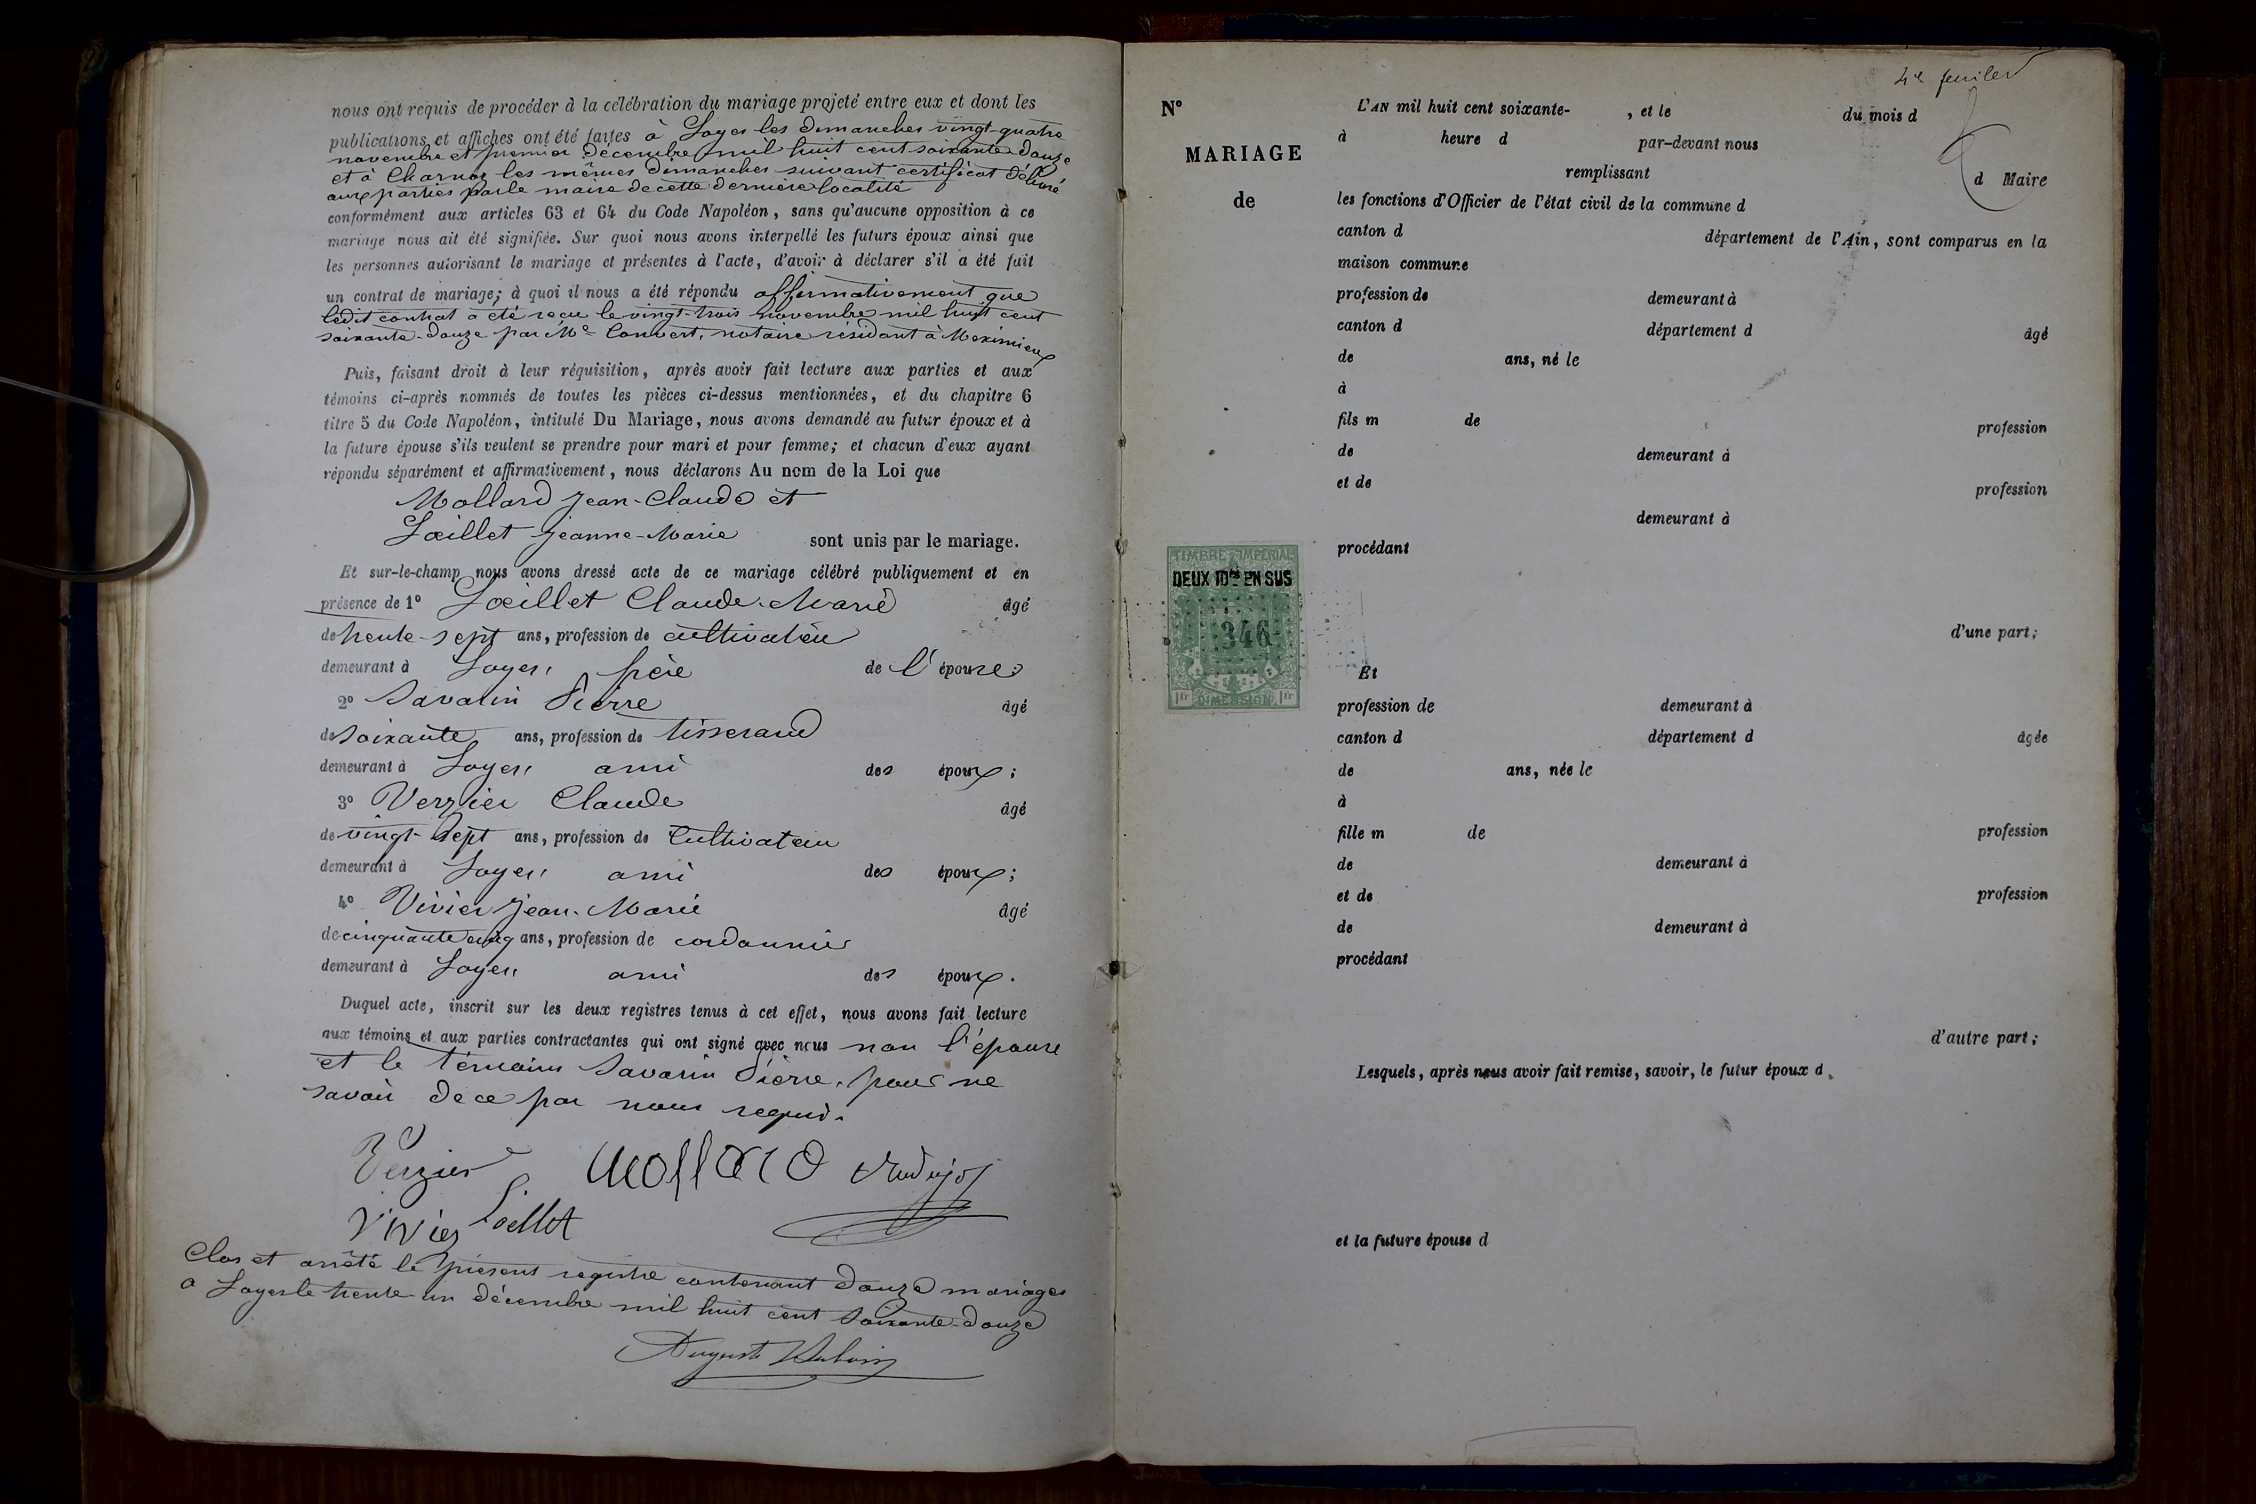 nous ont requis de procéder à la célébration du mariage projeté entre eux et dont les
publications et affiches ont été faites à Loyes les dimanches vingt-quatre
novembre et premier décembre mil huit cent soixante-douze
et à Charnoz les mêmes dimanches suivant certificat délivré
aux parties par le maire de cette dernière localité
conformément aux articles 63 et 64 du Code Napoléon, sans qu'aucune opposition à ce
mariage nous ait été signifiée. Sur quoi nous avons interpellé les futurs époux ainsi que
les personnes autorisant le mariage et présentes à l'acte, d'avoir à déclarer s'il a été fait
un contrat de mariage; à quoi il nous a été répondu affirmativement que
ledit contrat a été reçu le vingt-trois novembre mil huit cent
soixante-douze par Me Convert, notaire résidant à Meximieux
Puis, faisant droit à leur réquisition, après avoir fait lecture aux parties et aux
témoins ci-après nommés de toutes les pièces ci-dessus mentionnées, et du chapitre 6
titre 5 du Code Napoléon, intitulé Du Mariage, nous avons demandé au futur époux et à
la future épouse s'ils veulent se prendre pour mari et pour femme; et chacun d'eux ayant
répondu séparément et affirmativement, nous déclarons Au nom de la Loi que
Mollard Jean-Claude et
Lœillet Jeanne-Marie sont unis par le mariage.
Et sur-le-champ nous avons dressé acte de ce mariage célébré publiquement et en
présence de 1° Lœillet Claude-Marie âgé
de trente-sept ans, profession de cultivateur
demeurant à Loyes, frère de l'épouse;
2° Savarin Pierre âgé
de soixante ans, profession de tisserand
demeurant à Loyes, ami des époux;
3° Verzier Claude âgé
de vingt-sept ans, profession de cultivateur
demeurant à Loyes, ami des époux;
4° Vivier Jean-Marie âgé
de cinquante cinq ans, profession de cordonnier
demeurant à Loyes, ami des époux.
Duquel acte, inscrit sur les deux registres tenus à cet effet, nous avons fait lecture
aux témoins et aux parties contractantes qui ont signé avec nous non l'épouse
et le témoins Savarin Pierre, pour ne
savoir de ce par nous requis.
Verzier Mollard
Vivier Loellet
Clos et arrêté le présent registre contenant douze mariages
a Loyes le trente-un décembre mil huit cent soixante-douze
Auguste
N°
MARIAGE
de
TIMBRE IMPÉRIAL
DEUX 10mes EN SUS
346
1 fr DIMENSION 1 fr
L'AN mil huit cent soixante- , et le du mois d
à heure d par-devant nous
remplissant d Maire
les fonctions d'Officier de l'état civil de la commune d
canton d département de l'Ain, sont comparus en la
maison commune
profession de demeurant à
canton d département d âgé
de ans, né le
à
fils m de profession
de demeurant à
et de profession
demeurant à
procédant
d'une part;
Et
profession de demeurant à
canton d département d âgée
de ans, née le
à
fille m de profession
de demeurant à
et de profession
de demeurant à
procédant
d'autre part;
Lesquels, après nous avoir fait remise, savoir, le futur époux d
et la future épouse d